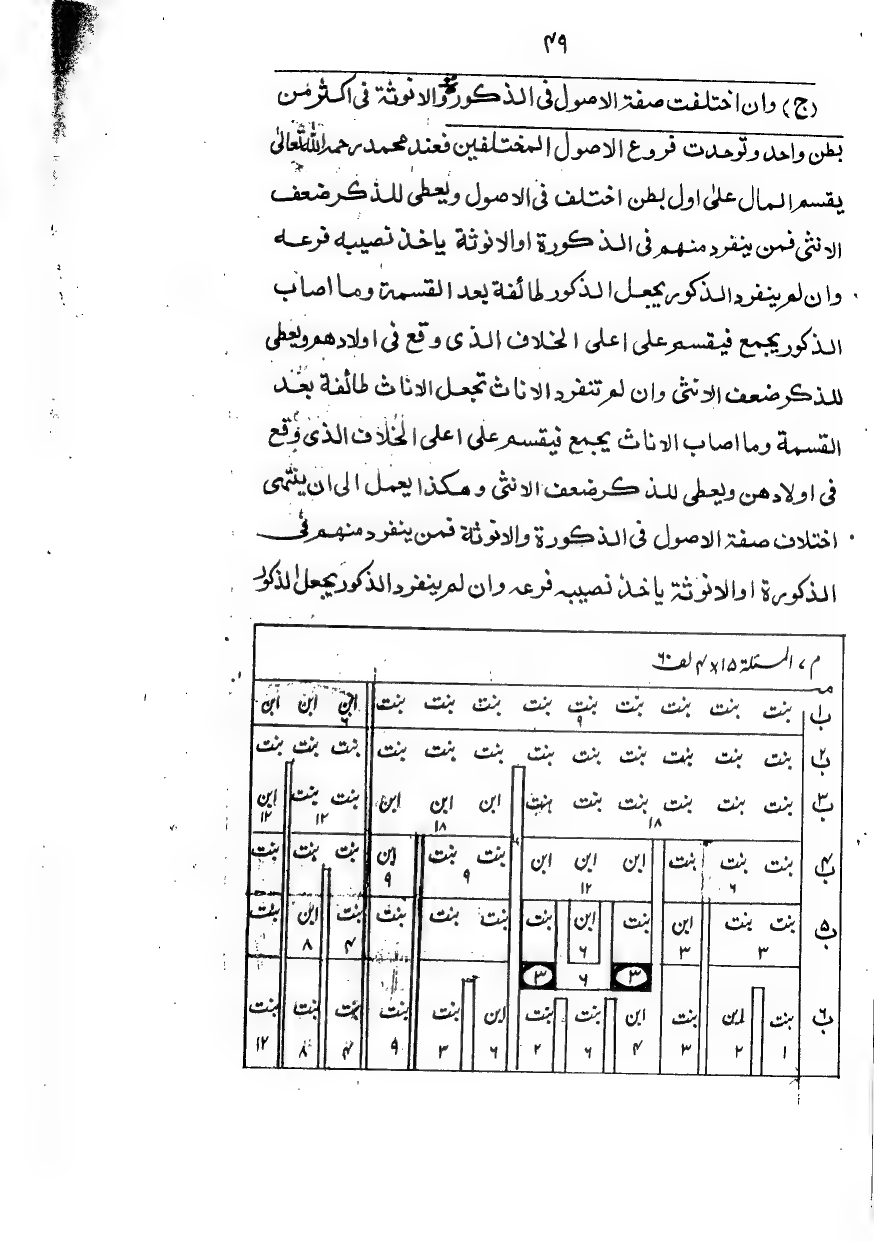 ۴۹
(ج) وان اختلفت صفة الاصول فی الذکورة والانوثة فی اکثر من
بطن واحد وتوحدت فروع الاصول المختلفین فعند محمد رحمہ اللہ تعالیٰ
یقسم المال علی اول بطن اختلف فی الاصول ویعطی للذکر ضعف
الانثی فمن ینفرد منهم فی الذکورة او الانوثة یاخذ نصیبه فرعه
وان لم ینفرد الذکور یجعل الذکور طائفة بعد القسمة وما اصاب
الذکور یجمع فیقسم علی اعلی الخلاف الذی وقع فی اولادهم ویعطی
للذکر ضعف الانثی وان لم تنفرد الاناث تجعل الاناث طائفة بعد
القسمة وما اصاب الاناث یجمع فیقسم علی اعلی الخلاف الذی وقع
فی اولادهن ویعطی للذکر ضعف الانثی وهکذا یعمل الی ان ینتهی
اختلاف صفة الاصول فی الذکورة والانوثة فمن ینفرد منهم فی
الذکورة او الانوثة یاخذ نصیبه فرعه وان لم ینفرد الذکور یجعل الذکور
م، المسئلة ۱۵ x ۴ لف ۶۰
ب۱ بنت بنت بنت بنت بنت بنت بنت بنت بنت ابن ابن ابن
۹ ۶
ب۲ بنت بنت بنت بنت بنت بنت بنت بنت بنت بنت بنت بنت
ب۳ بنت بنت بنت بنت بنت بنت ابن ابن ابن بنت بنت ابن
۱۸ ۱۸ ۱۲ ۱۲
ب۴ بنت بنت بنت ابن ابن ابن بنت بنت ابن بنت بنت بنت
۶ ۱۲ ۹ ۹
ب۵ بنت بنت ابن بنت ابن بنت بنت بنت بنت بنت ابن بنت
۳ ۳ ۶ ۴ ۸
۳ ۶ ۳
ب۶ بنت ابن بنت ابن بنت بنت ابن بنت بنت بنت بنت بنت
۱ ۲ ۳ ۴ ۶ ۲ ۶ ۳ ۹ ۴ ۸ ۱۲